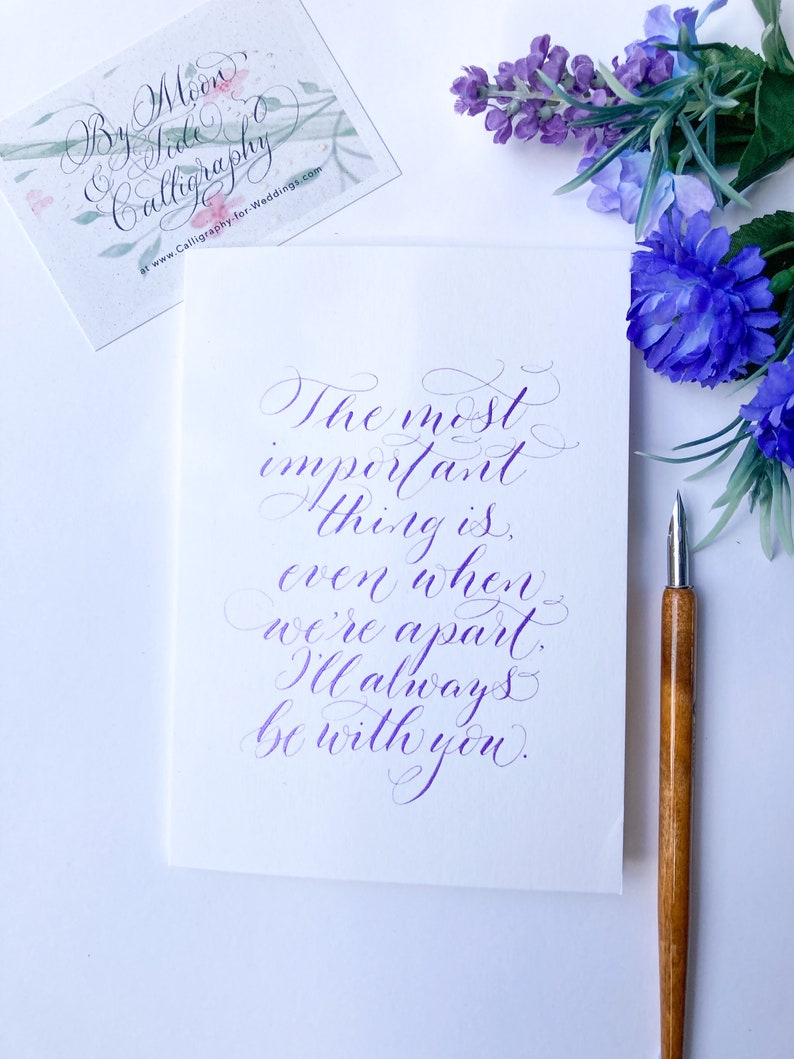 By Moon
& Tide
Calligraphy
at www.Calligraphy-for-Weddings.com
The most
important
thing is,
even when
we're apart,
I'll always
be with you.